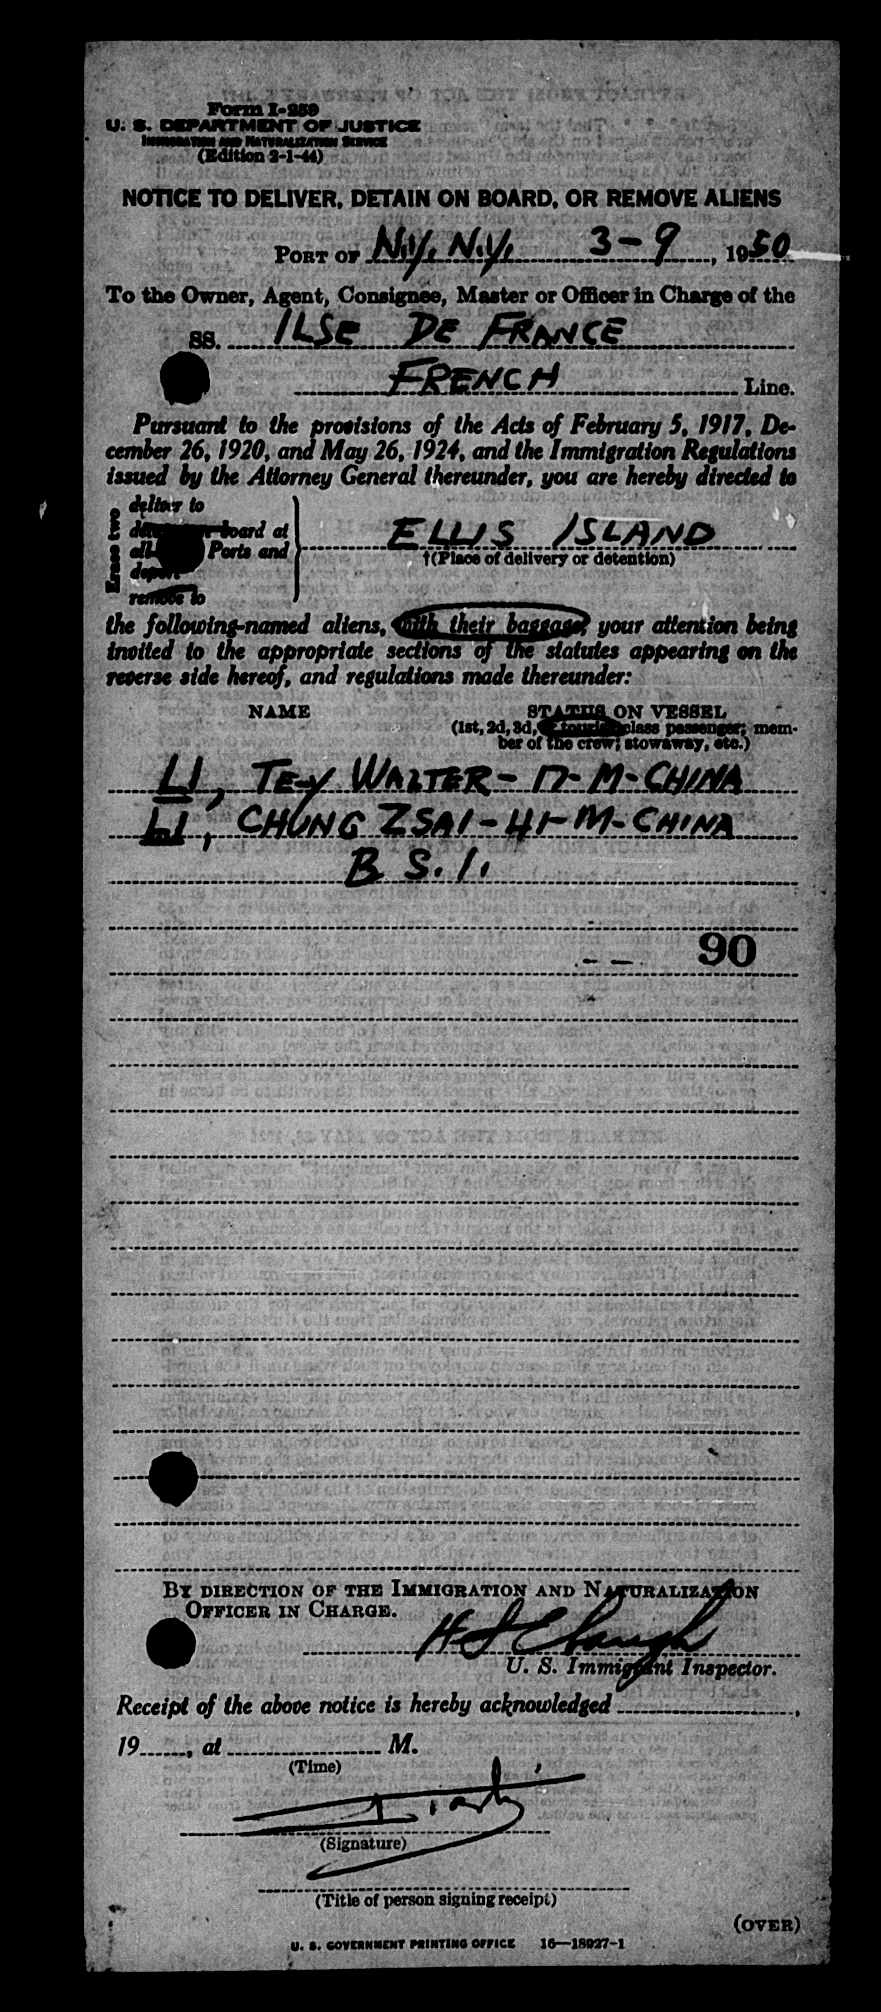 Form I-259
U. S. DEPARTMENT OF JUSTICE
IMMIGRATION AND NATURALIZATION SERVICE
(Edition 2-1-44)
NOTICE TO DELIVER, DETAIN ON BOARD, OR REMOVE ALIENS
PORT OF N.Y. N.Y. 3-9, 1950
To the Owner, Agent, Consignee, Master or Officer in Charge of the
SS. ILSE DE FRANCE
FRENCH Line.
Pursuant to the provisions of the Acts of February 5, 1917, De-
cember 26, 1920, and May 26, 1924, and the Immigration Regulations
issued by the Attorney General thereunder, you are hereby directed to
Erase two
deliver to
board at
all Ports and
remove to
ELLIS ISLAND
†(Place of delivery or detention)
the following-named aliens, with their baggage, your attention being
invited to the appropriate sections of the statutes appearing on the
reverse side hereof, and regulations made thereunder:
NAME STATUS ON VESSEL
(1st, 2d, 3d, tourist class passenger; mem-
ber of the crew; stowaway, etc.)
LI, TE-Y WALTER - 17 - M - CHINA
LI, CHUNG ZSAI - 41 - M - CHINA
B S. I.
90
BY DIRECTION OF THE IMMIGRATION AND NATURALIZATION
OFFICER IN CHARGE.
U. S. Immigrant Inspector.
Receipt of the above notice is hereby acknowledged ,
19 , at M.
(Time)
(Signature)
(Title of person signing receipt)
(OVER)
U. S. GOVERNMENT PRINTING OFFICE 16—18927-1